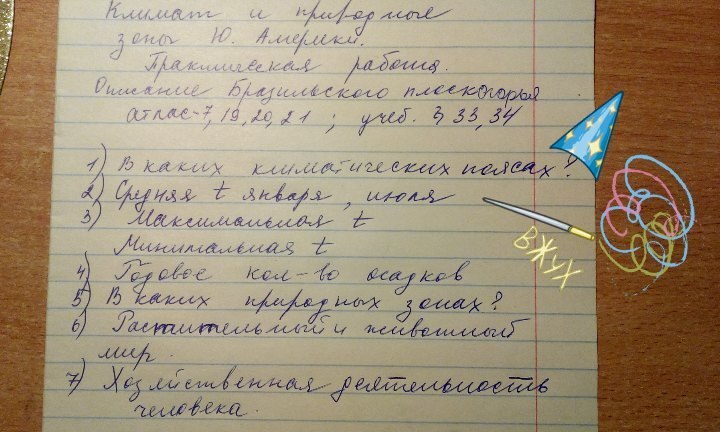 Климат и природные
зоны Ю. Америки.
Практическая работа.
Описание Бразильского плоскогорья
атлас-7, 19, 20, 21 ; учеб. § 33, 34
1) В каких климатических поясах?
2) Средняя t января, июля
3) Максимальная t
Минимальная t
4) Годовое кол-во осадков
5) В каких природных зонах?
6) Растительный и животный
мир.
7) Хозяйственная деятельность
человека.
ВЖУХ